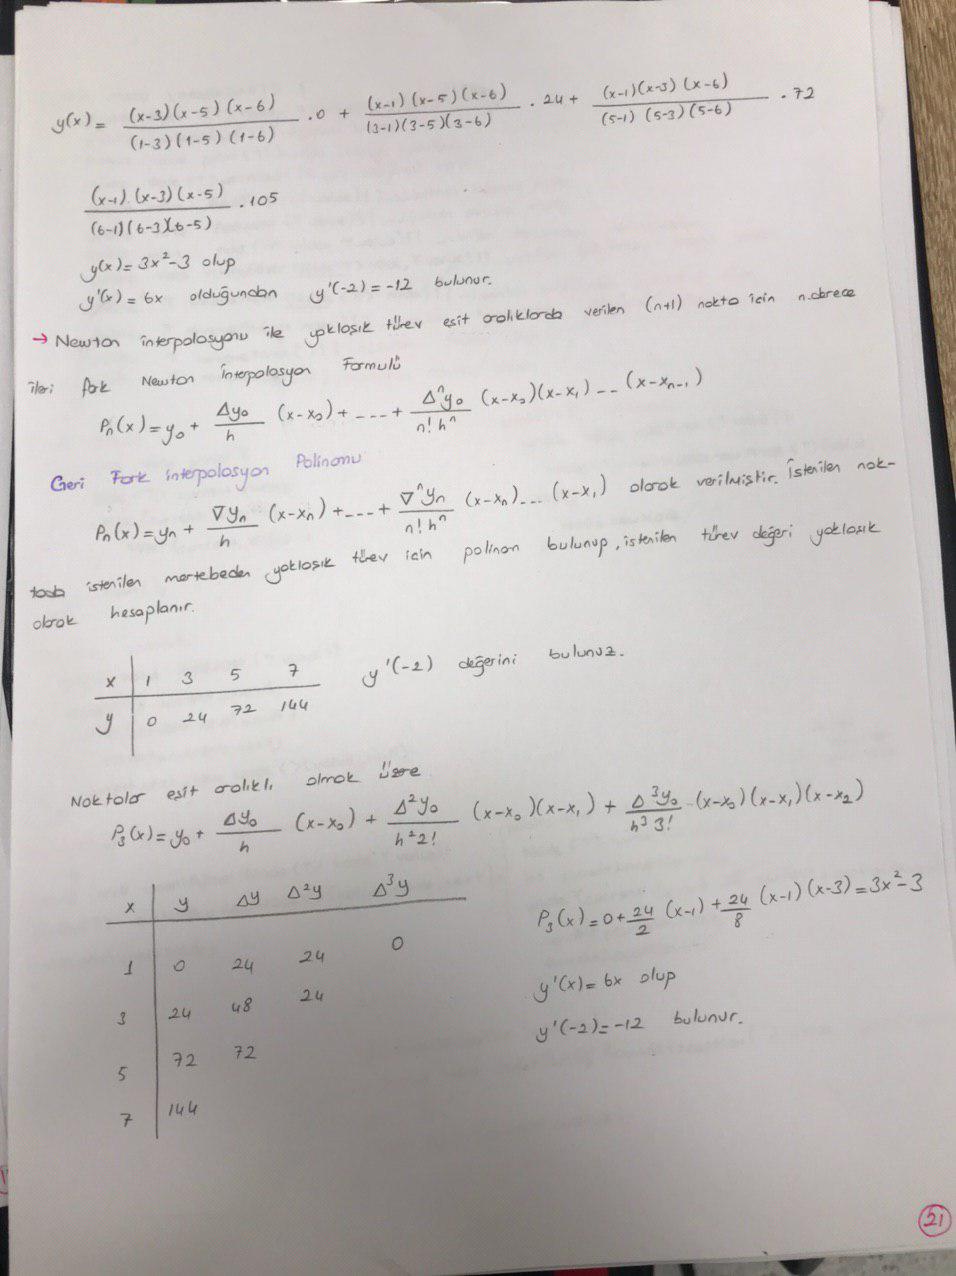 y(x) = (x-3)(x-5)(x-6) / (1-3)(1-5)(1-6) .0 + (x-1)(x-5)(x-6) / (3-1)(3-5)(3-6) . 24 + (x-1)(x-3)(x-6) / (5-1)(5-3)(5-6) . 72
(x-1).(x-3)(x-5) / (6-1)(6-3)(6-5) .105
y(x) = 3x²-3 olup
y'(x) = 6x olduğundan y'(-2) = -12 bulunur.
→ Newton interpolasyonu ile yaklaşık türev eşit aralıklarda verilen (n+1) nokta için n.derece
ileri fark Newton İnterpolasyon Formulü
Pn(x) = y₀ + Δy₀/h (x-x₀) + ---- + Δⁿy₀/n!hⁿ (x-x₀)(x-x₁) -- (x-xn-1)
Geri Fark interpolasyon Polinomu
Pn(x) = yn + ∇yn/h (x-xn) + ---- + ∇ⁿyn/n!hⁿ (x-xn)---(x-x₁) olarak verilmiştir. İstenilen nok-
tada istenilen mertebeden yaklaşık türev için polinom bulunup, istenilen türev değeri yaklaşık
olarak hesaplanır.
x | 1 3 5 7 y'(-2) değerini bulunuz.
y | 0 24 72 144
Noktalar eşit aralıklı olmak üzere
P₃(x) = y₀ + Δy₀/h (x-x₀) + Δ²y₀/h²2! (x-x₀)(x-x₁) + Δ³y₀/h³3! (x-x₀)(x-x₁)(x-x₂)
x | y Δy Δ²y Δ³y
1 | 0 24 24 0
3 | 24 48 24
5 | 72 72
7 | 144
P₃(x) = 0 + 24/2 (x-1) + 24/8 (x-1)(x-3) = 3x²-3
y'(x) = 6x olup
y'(-2) = -12 bulunur.
21